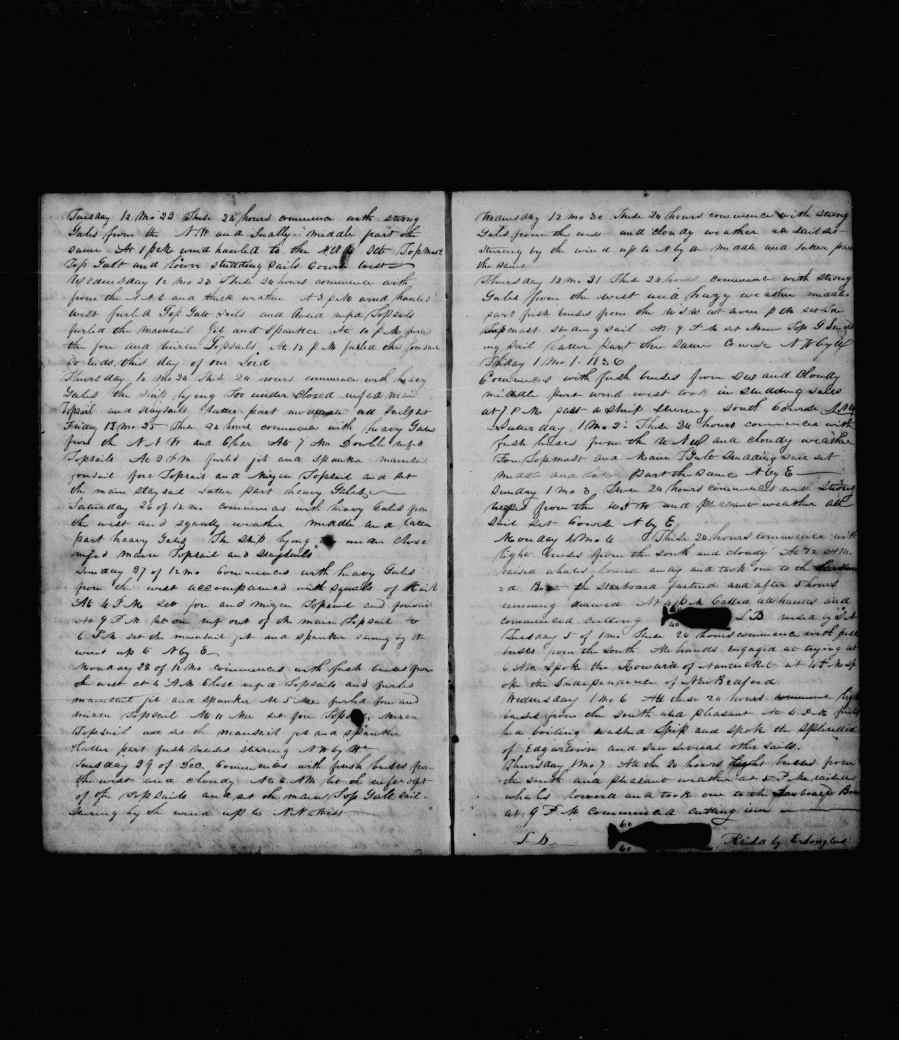 Tuesday 12 Mo 22 These 24 hours commence with strong
Gales from the N W and Squally middle part the
same At 1 P M wind hauled to the N W Set Topmast
Top Galt and lower studding sails Corse west
Wednesday 12 mo 23 These 24 hours commence with
from the N N E and thick weather At 3 P M wind hauled
west furled Top Galt Sails and Reefd Topsails
furled the mainsail Jib and Spanker At 10 P M furld
the fore and mizen Topsails At 12 P M furled the foresail
So Ends this day of our Lord
Thursday 12 mo 24 These 24 hours commence with heavy
Gales the Ship lying Too under Closed refed main
Topsail and staysails latter part all Sail set
Friday 12 mo 25 These 24 hours commence with heavy Gales
from the N N W and Clear At 7 Am Double refd
Topsails At 2 P M furled jib and spanker mainsail
foresail fore Topsail and Mizen Topsail and set
the main staysail Latter part heavy Gales
Saturday 26 of 12 mo commences with heavy Gales from
the west and squally weather middle and latter
part heavy Gales The Ship lying to under close
refed main Topsail and staysails
Sunday 27 of 12 mo Commences with heavy Gales
from the west accompanied with squals of Hail
At 4 P M set fore and mizen Topsail and foresail
At 9 P M let one ref out of the main Topsail
6 P M set the mainsail jib and spanker stering by the
wind up to N by E
Monday 28 of 12 mo commences with fresh breses from
the west at 4 A M Close refd Topsails and furled
mainsail jib and spanker At 5 furled fore and
mizen Topsail At 11 set fore Topsail mizen
Topsail and set the mainsail jib and spanker
Latter part fresh breses sterring N W by W
Tuesday 29 of Dec Commences with fresh breses from
the west and cloudy At 6 A M let the refs out
of the Topsails and set the main Top Galt sail
Steering by the wind up to N N West
Wednesday 12 mo 30 These 24 hours commence with strong
Gales from the west and cloudy weather all sail set
sterring by the wind up to N by W middle and latter part
the same
Thursday 12 mo 31 These 24 hours commence with strong
Gales from the West and hazy weather middle
part fresh breses from the W S W at P M set fore
Topmast studing sail At 9 P M set Main Top G Studd
ing sail Latter part the same Course N W by W
Friday 1 Mo 1. 1836
Commences with fresh breses from S W and Cloudy
middle part wind west took in studding sails
at 7 P M past a ship sterring south Course
Saturday 1 Mo 2 These 24 hours commences with
fresh breses from the W and cloudy weather
Fore Topmast and Main T Galt Studding sail set
middle and latter part the same N by E
Sunday 1 Mo 3 These 24 hours commences with strong
breses from the W S W and pleasant weather all
Sail set Course N by E
Monday 4 Mo 1 These 24 hours commence with
light breses from the south and cloudy At 12 A M
raised whales lowered away and took one to the
Boat the Starboard fastend and after 5 hours
running drowed At 4 P M Called all hands and
commenced cutting 60 40 L B
Tuesday 5 of 1 mo These 24 hours commence with
breses from the South All hands engaged at trying at
6 Am Spoke the Howard of Nantucket at 4 P M sp
oke the Independence of New Bedford
Wednesday 1 Mo 6 All these 24 hours light
breses from the South and Pleasant At 4 P M
boiling washed Ship and spoke the Splendid
of Edgartown and saw several other sails.
Thursday 1 Mo 7 All the 24 hours light breses from
the south and pleasant weather at 5 P M raised
whales lowerd and took one to the Larboard Boat
at 9 P M commenced cutting him
L B 60 60 Raised by E Douglass